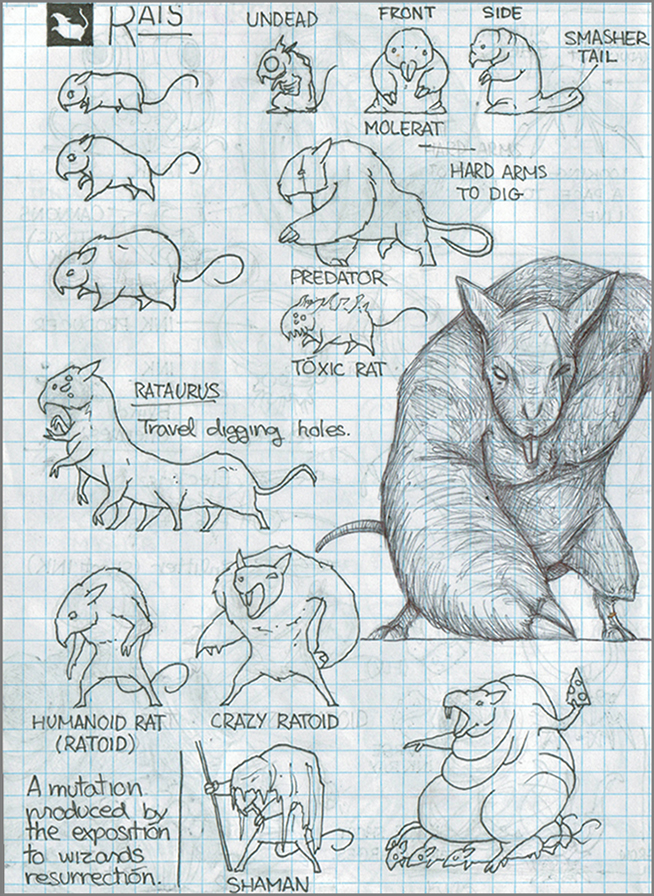 RATS
UNDEAD
FRONT
SIDE
SMASHER
TAIL
MOLERAT
HARD ARMS
TO DIG
PREDATOR
TOXIC RAT
RATAURUS
Travel digging holes.
HUMANOID RAT
(RATOID)
CRAZY RATOID
A mutation
produced by
the exposition
to wizards
resurrection.
SHAMAN